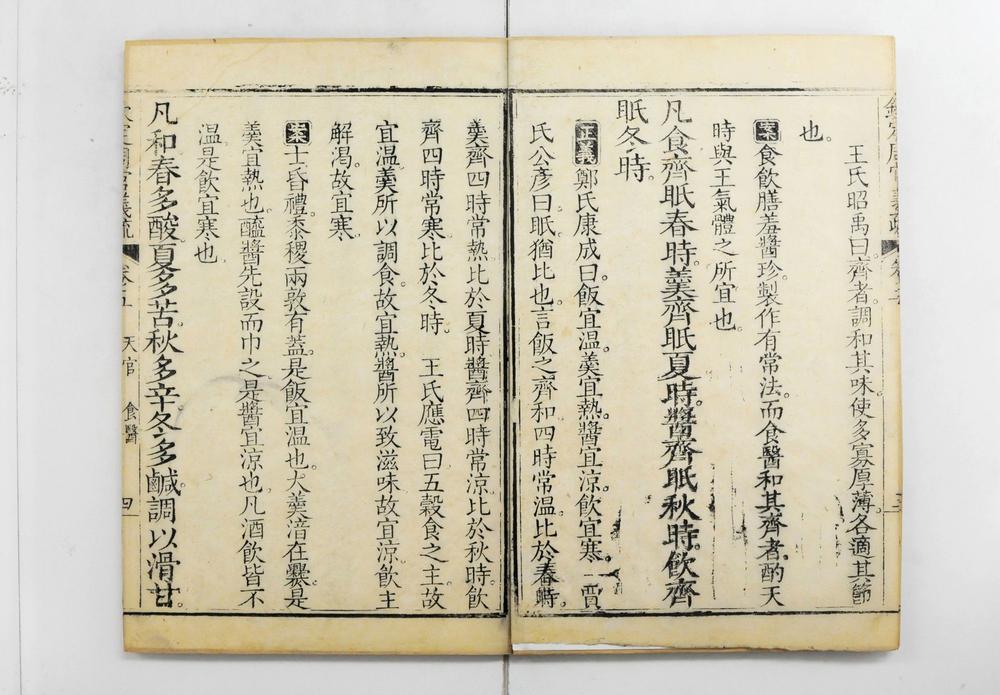 王氏昭禹曰齊者調和其味使多寡厚薄各適其節
也
案食飲膳羞醬珍製作有常法而食醫和其齊者酌天
時與王氣體之所宜也
凡食齊眡春時羹齊眡夏時醬齊眡秋時飲齊
眡冬時
正義鄭氏康成曰飯宜温羹宜熱醬宜涼飲宜寒 賈
氏公彥曰眡猶比也言飯之齊和四時常温比於春時
羹齊四時常熱比於夏時醬齊四時常涼比於秋時飲
齊四時常寒比於冬時 王氏應電曰五穀食之主故
宜温羹所以調食故宜熱醬所以致滋味故宜涼飲主
解渴故宜寒
案士昏禮黍稷兩敦有蓋是飯宜温也大羹湆在爨是
羹宜熱也醯醬先設而巾之是醬宜涼也凡酒飲皆不
温是飲宜寒也
凡和春多酸夏多苦秋多辛冬多鹹調以滑甘
卷五 天官 食醫 四